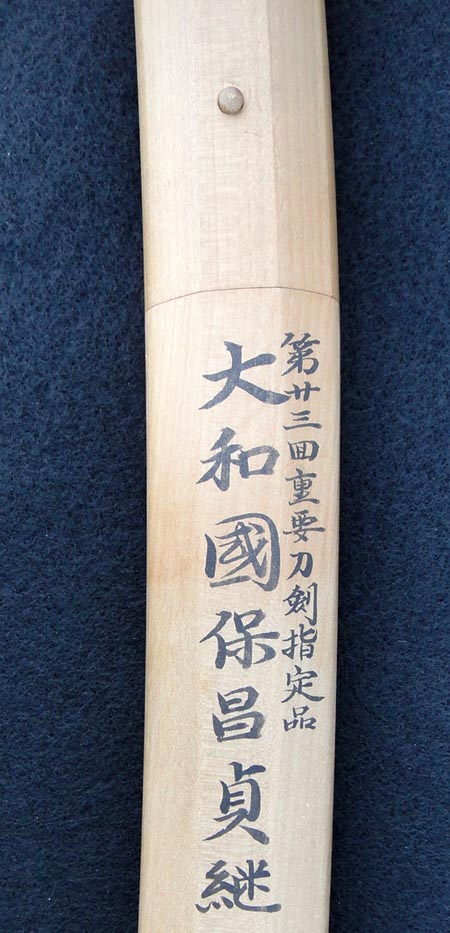 第廿三回重要刀剣指定品
大和國保昌貞継